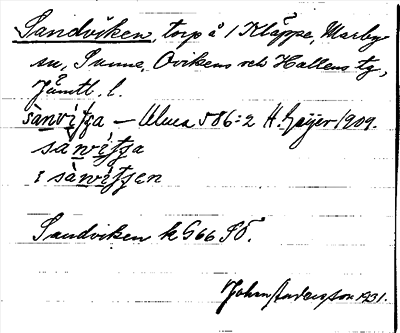 Sandviken, torp å 1 Kläppe, Marby
sn, Sunne, Ovikens och Hallens tg,
Jämtl. l.
sanvitja — Ulma 586:2 H. Geijer 1909.
sàwitja
i sàwitjen
Sandviken k G66 SÖ.
Johan Andersson 1931.